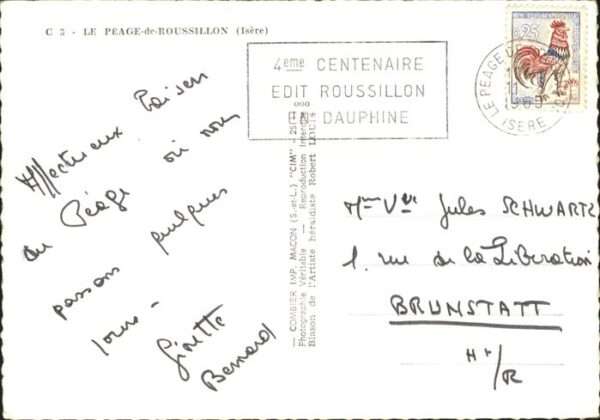 C 2 - LE PÉAGE-de-ROUSSILLON (Isère)
4eme CENTENAIRE
EDIT ROUSSILLON
EN DAUPHINE
0,25
LE PEAGE
ISERE
Affectueux Baiser
du Péage où nous
passons quelques
jours -
Ginette
Bernard
— COMBIER IMP. MACON (S.-et-L.) "CIM" —
Photographie Véritable — Reproduction Interdite
Blason de l'Artiste héraldiste Robert LOUIS
Mme Vve Jules SCHWARTZ
1. rue de la Libération
BRUNSTATT
Ht/R